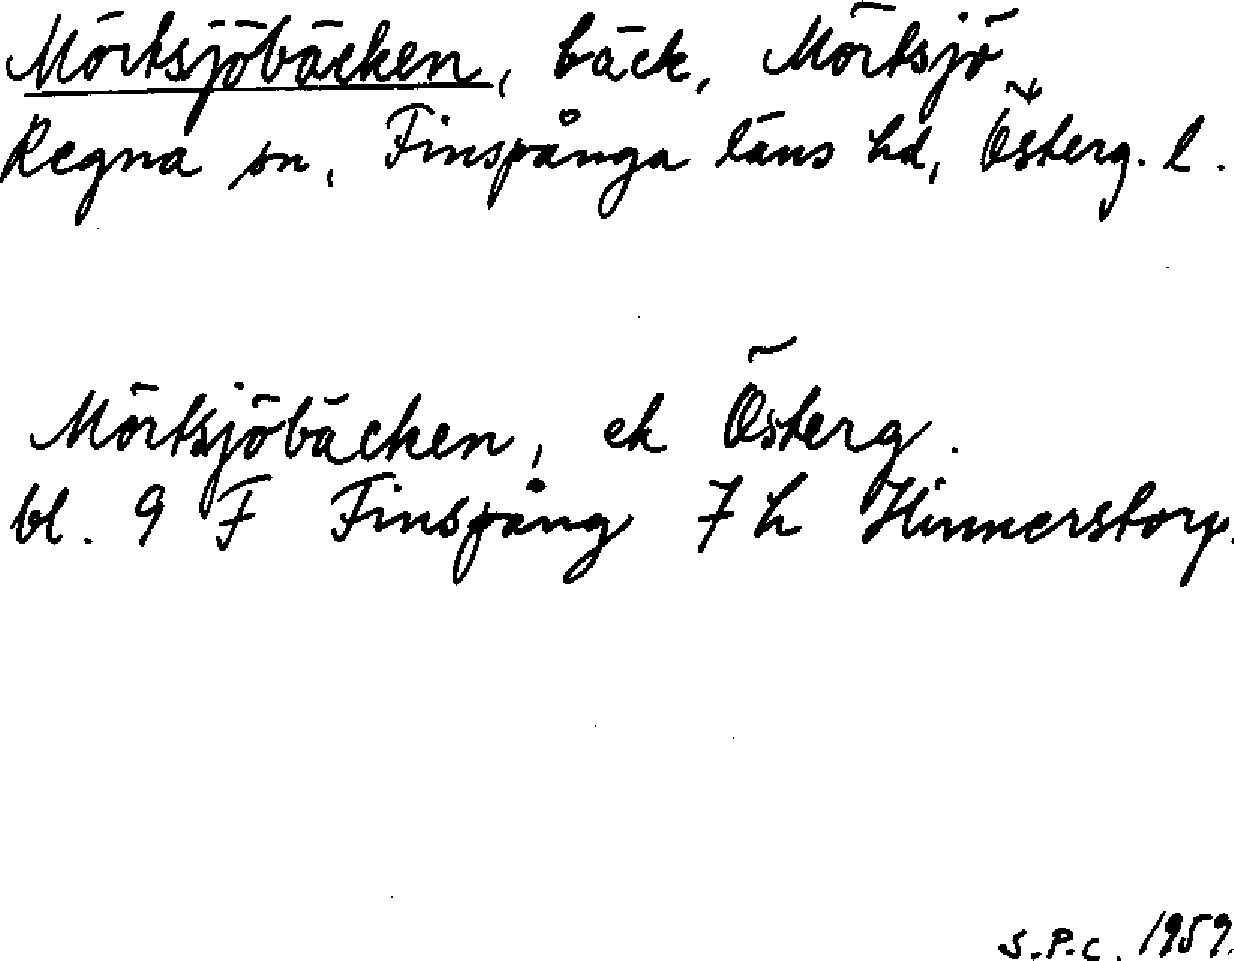 Mörtsjöbäcken, bäck, Mörtsjö
Regna sn, Finspånga läns hd, Österg. l.
Mörtsjöbäcken, ek Österg.
bl. 9 F Finspång 7 h Hinnerstorp.
S.P.C. 1959.